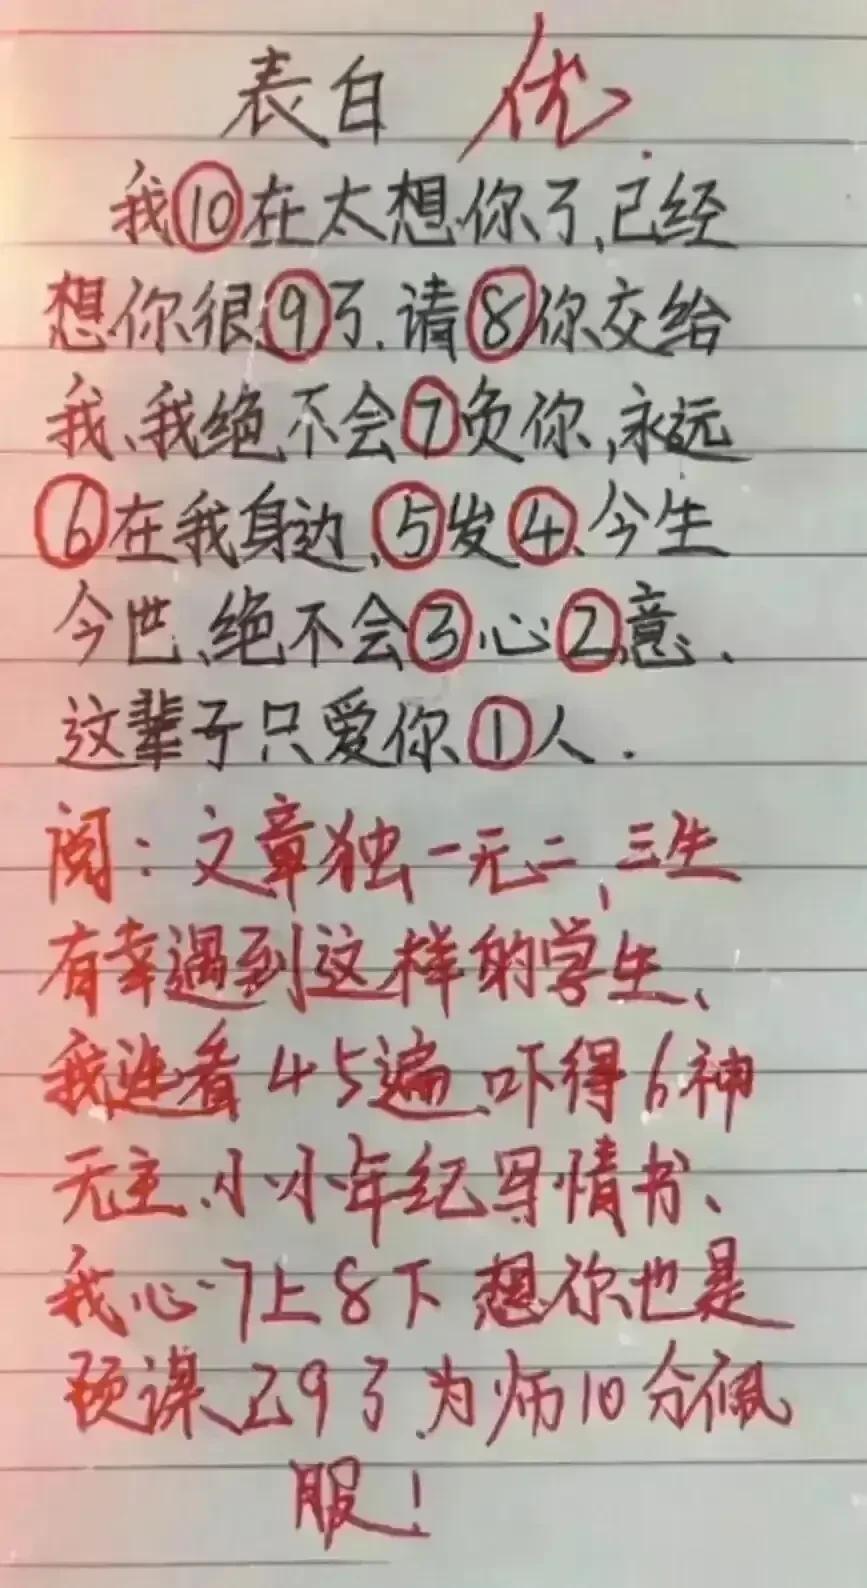 表白 优
我⑩在太想你了,已经
想你很⑨了.请⑧你交给
我、我绝不会⑦负你,永远
⑥在我身边、⑤发④、今生
今世、绝不会③心②意.
这辈子只爱你①人.
阅:文章独一无二、三生
有幸遇到这样的学生、
我连看45遍、吓得6神
无主、小小年纪写情书、
我心7上8下 想你也是
预谋已9了、为师10分佩
服!